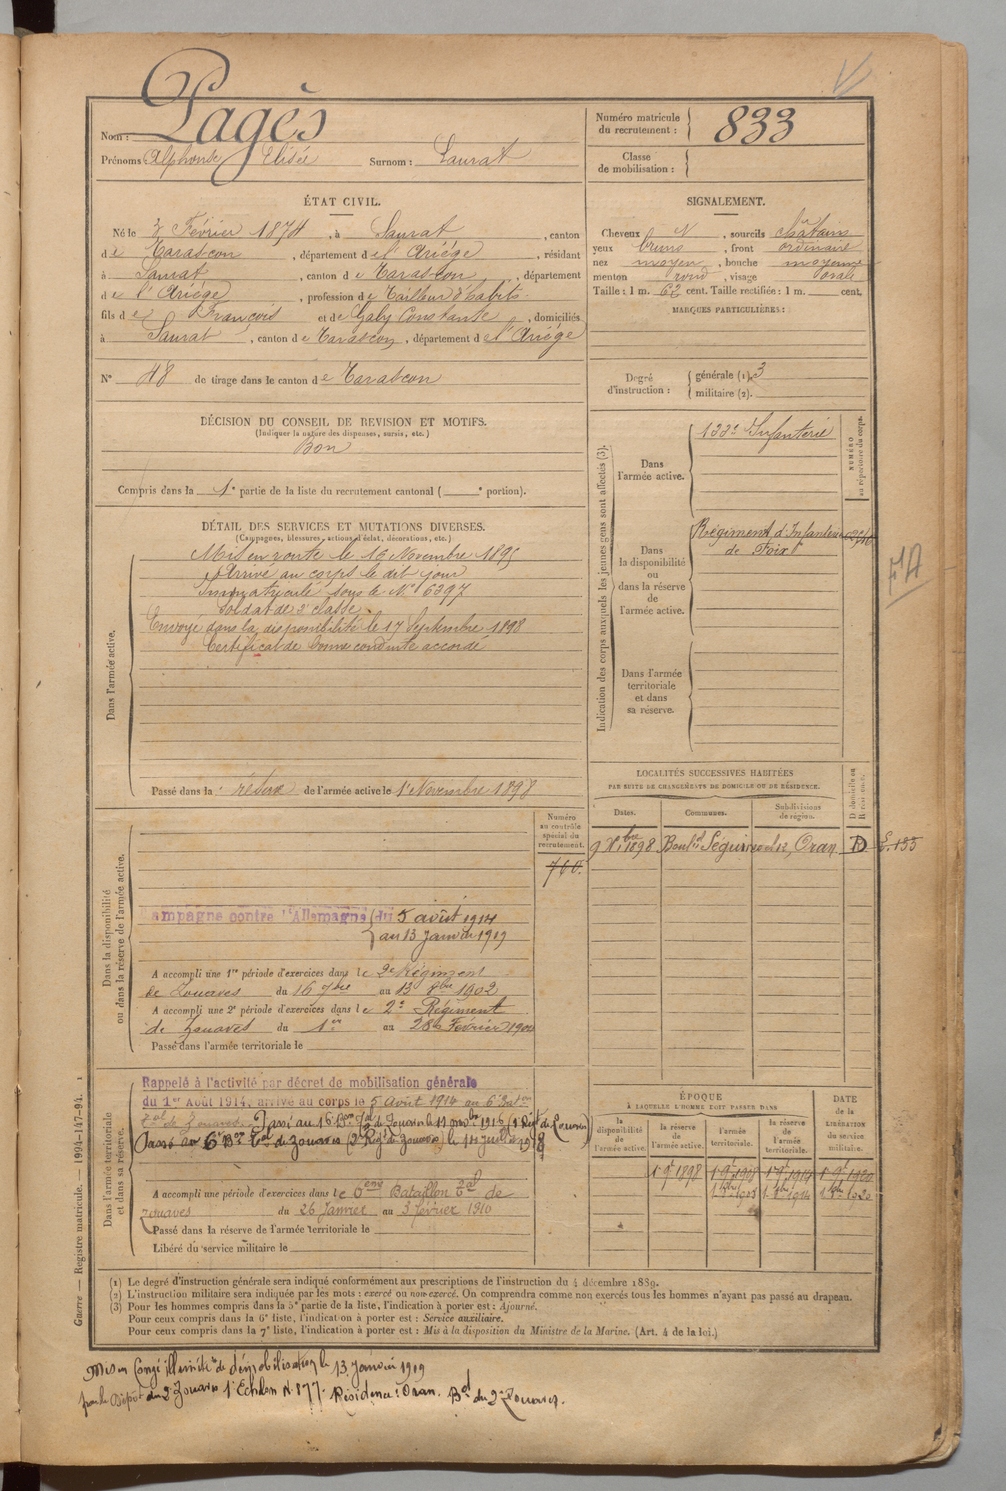 Nom : Pagès
Prénoms : Alphonse Elisée Surnom : Saurat
Numéro matricule du recrutement : 833
Classe de mobilisation :
ÉTAT CIVIL.
Né le 3 Février 1874, à Saurat, canton
de Tarascon, département de l'Ariége, résidant
à Saurat, canton de Tarascon, département
de l'Ariége, profession de Tailleur d'habits
fils de François et de Galy Constante, domiciliés
à Saurat, canton de Tarascon, département de l'Ariége
N° 48 de tirage dans le canton de Tarascon
SIGNALEMENT.
Cheveux N, sourcils châtains
yeux bruns, front ordinaire
nez moyen, bouche moyenne
menton rond, visage ovale
Taille : 1 m. 62 cent. Taille rectifiée : 1 m. cent.
MARQUES PARTICULIÈRES :
Degré d'instruction : générale (1). 3
militaire (2).
DÉCISION DU CONSEIL DE REVISION ET MOTIFS.
(Indiquer la nature des dispenses, sursis, etc.)
Bon
Compris dans la 1e partie de la liste du recrutement cantonal ( e portion).
Indication des corps auxquels les jeunes gens sont affectés (3).
NUMÉRO au répertoire du corps.
Dans l'armée active.
133e Infanterie
Dans la disponibilité ou dans la réserve de l'armée active.
Régiment d'Infanterie
de Foix
Dans l'armée territoriale et dans sa réserve.
DÉTAIL DES SERVICES ET MUTATIONS DIVERSES.
(Campagnes, blessures, actions d'éclat, décorations, etc.)
Dans l'armée active.
Mis en route le 16 Novembre 1895
Arrivé au corps le dit jour
Immatriculé sous le N° 6397
Soldat de 2e classe
Envoyé dans la disponibilité le 17 Septembre 1898
Certificat de bonne conduite accordé
Passé dans la réserve de l'armée active le 1er Novembre 1898
LOCALITÉS SUCCESSIVES HABITÉES
PAR SUITE DE CHANGEMENTS DE DOMICILE OU DE RÉSIDENCE.
Dates. Communes. Subdivisions de région. D domicile ou R résidence.
9 Xbre 1898 Bould Séguin Oran D
Numéro au contrôle spécial du recrutement.
760.
Dans la disponibilité ou dans la réserve de l'armée active.
ampagne contre l'Allemagne du 5 août 1914
au 13 Janvier 1919
A accompli une 1re période d'exercices dans le 2e Régiment
de Zouaves du 16 7bre au 13 8bre 1902
A accompli une 2e période d'exercices dans le 2e Régiment
de Zouaves du 1er au 28 Février
Passé dans l'armée territoriale le
Dans l'armée territoriale et dans sa réserve.
Rappelé à l'activité par décret de mobilisation générale
du 1er Août 1914, arrivé au corps le 5 Août 1914 au 6e Baton
Tal de Zouaves. Passé au 16e Bon Tal de Zouaves le 11 1916
Passé au 6e Bon Tal de Zouaves (2e Regt de Zouaves) le 14 Juillet 1918
A accompli une période d'exercices dans le 6ème Bataillon Tal de
zouaves du 26 Janvier au 3 février 1910
Passé dans la réserve de l'armée territoriale le
Libéré du service militaire le
ÉPOQUE
à LAQUELLE L'HOMME DOIT PASSER DANS
la disponibilité de l'armée active. la réserve de l'armée active. l'armée territoriale. la réserve de l'armée territoriale. DATE de la LIBÉRATION du service militaire.
(1) Le degré d'instruction générale sera indiqué conformément aux prescriptions de l'instruction du 4 décembre 1889.
(2) L'instruction militaire sera indiquée par les mots : exercé ou non exercé. On comprendra comme non exercés tous les hommes n'ayant pas passé au drapeau.
(3) Pour les hommes compris dans la 5e partie de la liste, l'indication à porter est : Ajourné.
Pour ceux compris dans la 6e liste, l'indication à porter est : Service auxiliaire.
Pour ceux compris dans la 7e liste, l'indication à porter est : Mis à la disposition du Ministre de la Marine. (Art. 4 de la loi.)
Guerre — Registre matricule. — 1994-147-94.
Mis en Congé illimité de démobilisation le 13 janvier 1919
par le Dépôt du 2e Zouaves 1er Echelon N° 877. Résidence : Oran. Bd du 2e Zouaves.